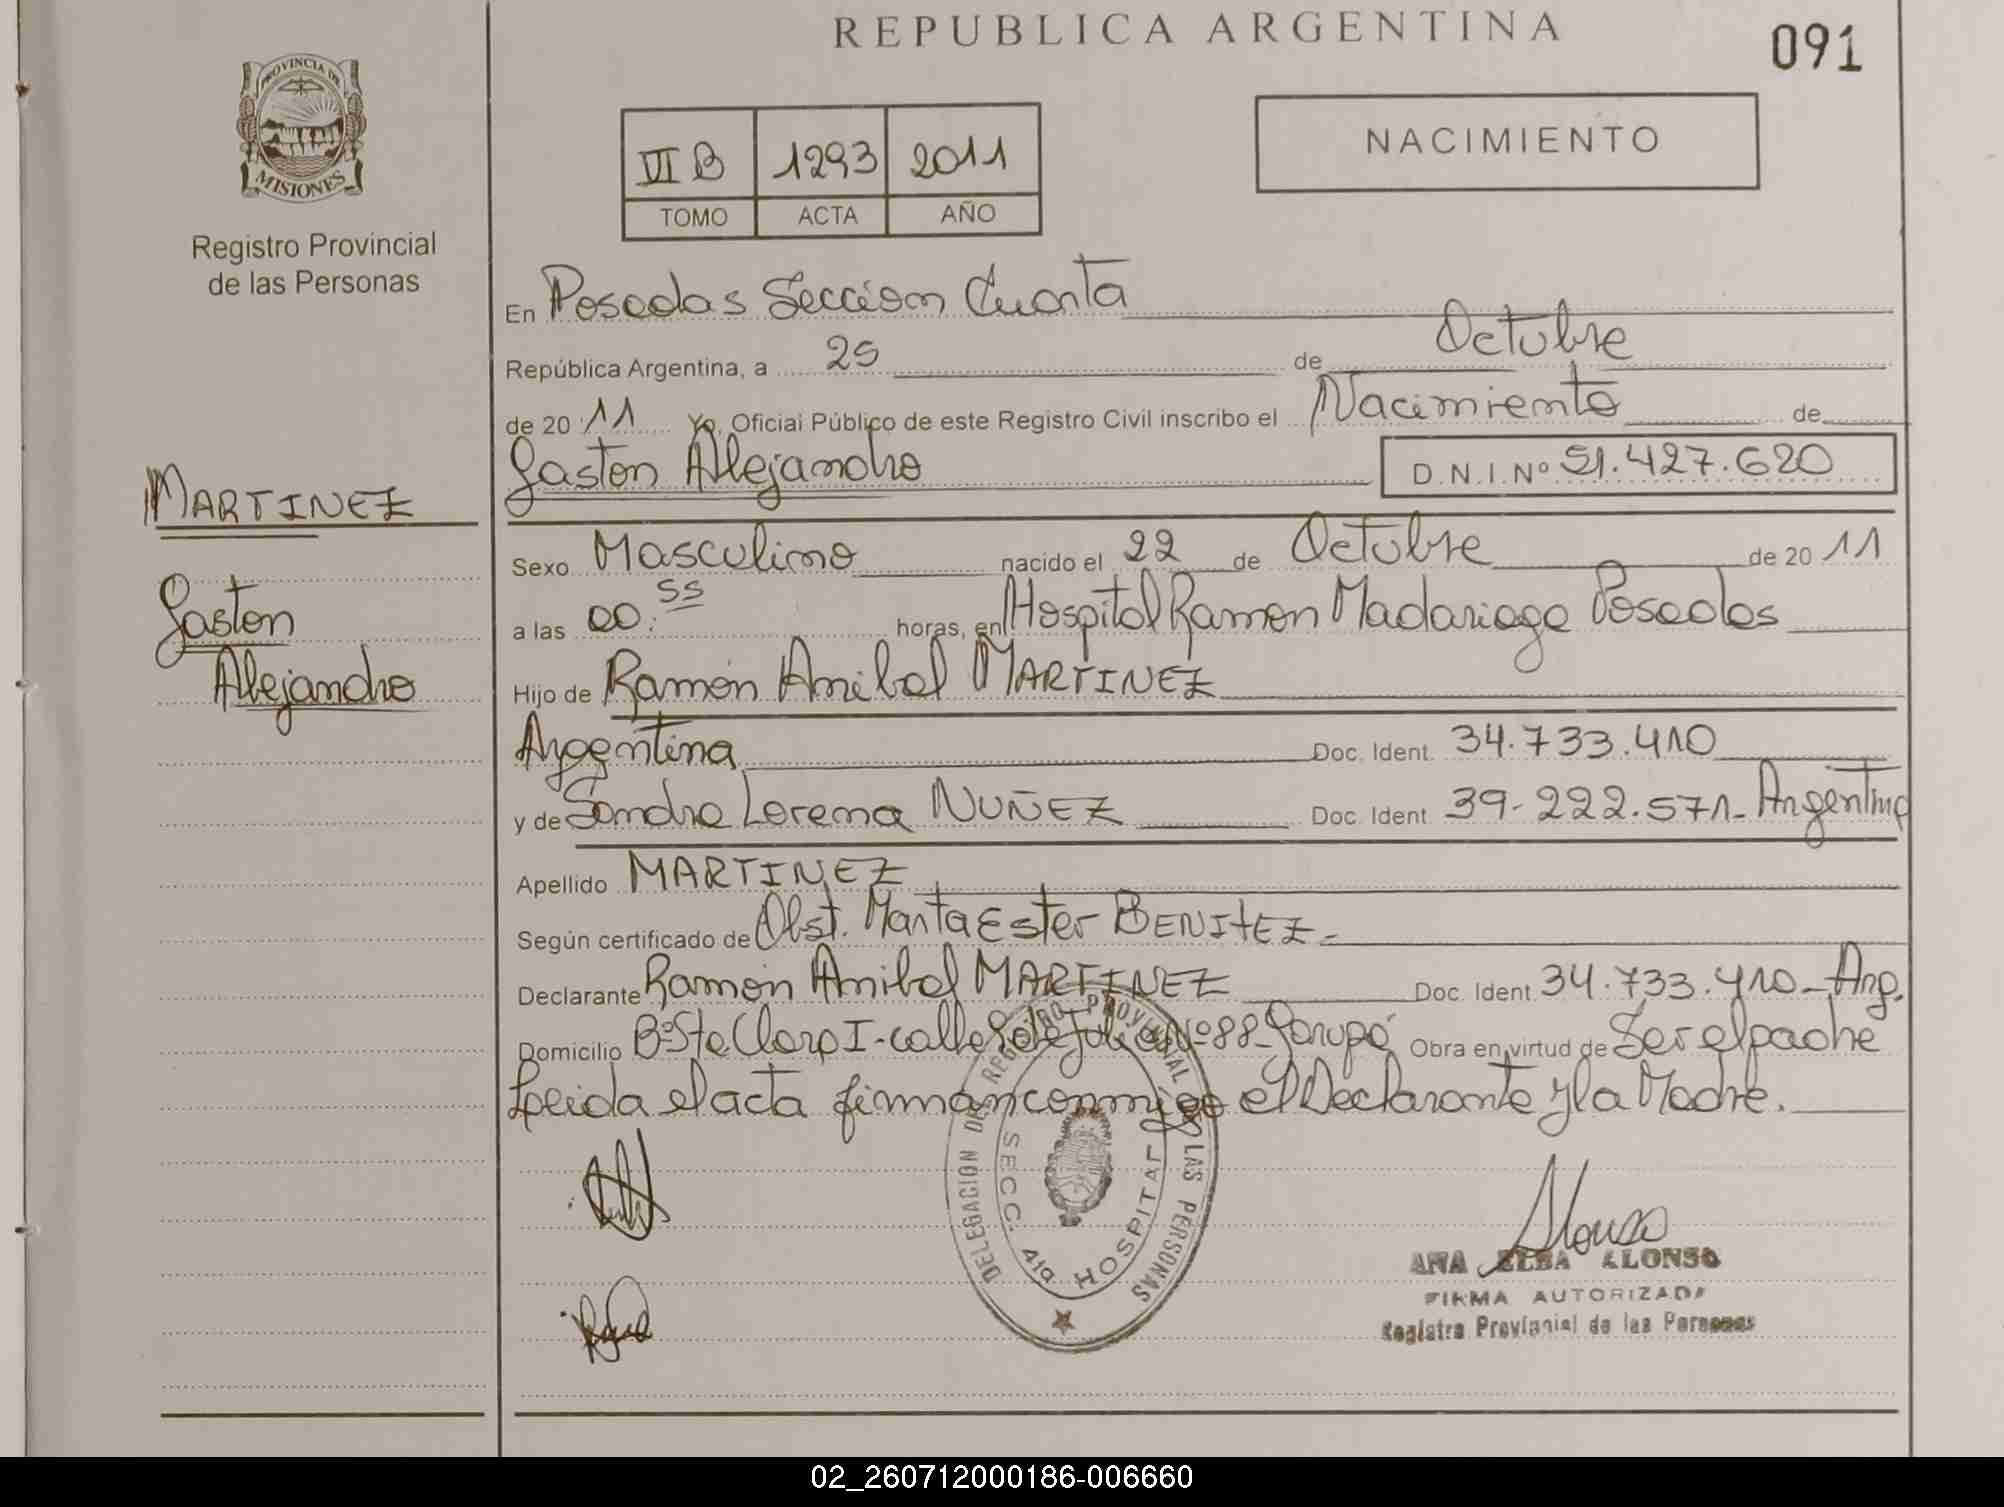 REPUBLICA ARGENTINA
091
PROVINCIA DE
MISIONES
Registro Provincial
de las Personas
VI B 1293 2011
TOMO ACTA AÑO
NACIMIENTO
En Posadas Sección Cuarta
República Argentina, a 25 de Octubre
de 2011 Yo, Oficial Público de este Registro Civil inscribo el Nacimiento de
Gastón Alejandro D.N.I.Nº 51.427.620
MARTINEZ
Gastón
Alejandro
Sexo Masculino nacido el 22 de Octubre de 2011
a las 00:55 horas, en Hospital Ramón Madariaga Posadas
Hijo de Ramón Anibal MARTINEZ
Argentina Doc. Ident. 34.733.410
y de Sandra Lorena NUÑEZ Doc. Ident. 39.222.571- Argentina
Apellido MARTINEZ
Según certificado de Obst. Marta Ester BENITEZ-
Declarante Ramón Anibal MARTINEZ Doc. Ident. 34.733.410- Arg.
Domicilio Bº Sta Clara I- calle 9 de Julio Nº 88- Garupá Obra en virtud de Ser el padre
Leida el acta firman conmigo el Declarante y la Madre.
DELEGACION DEL REGISTRO PROVINCIAL DE LAS PERSONAS
SECC. 4ta HOSPITAL
Alonso
ANA ELBA ALONSO
FIRMA AUTORIZADA
Registro Provincial de las Personas
02_260712000186-006660